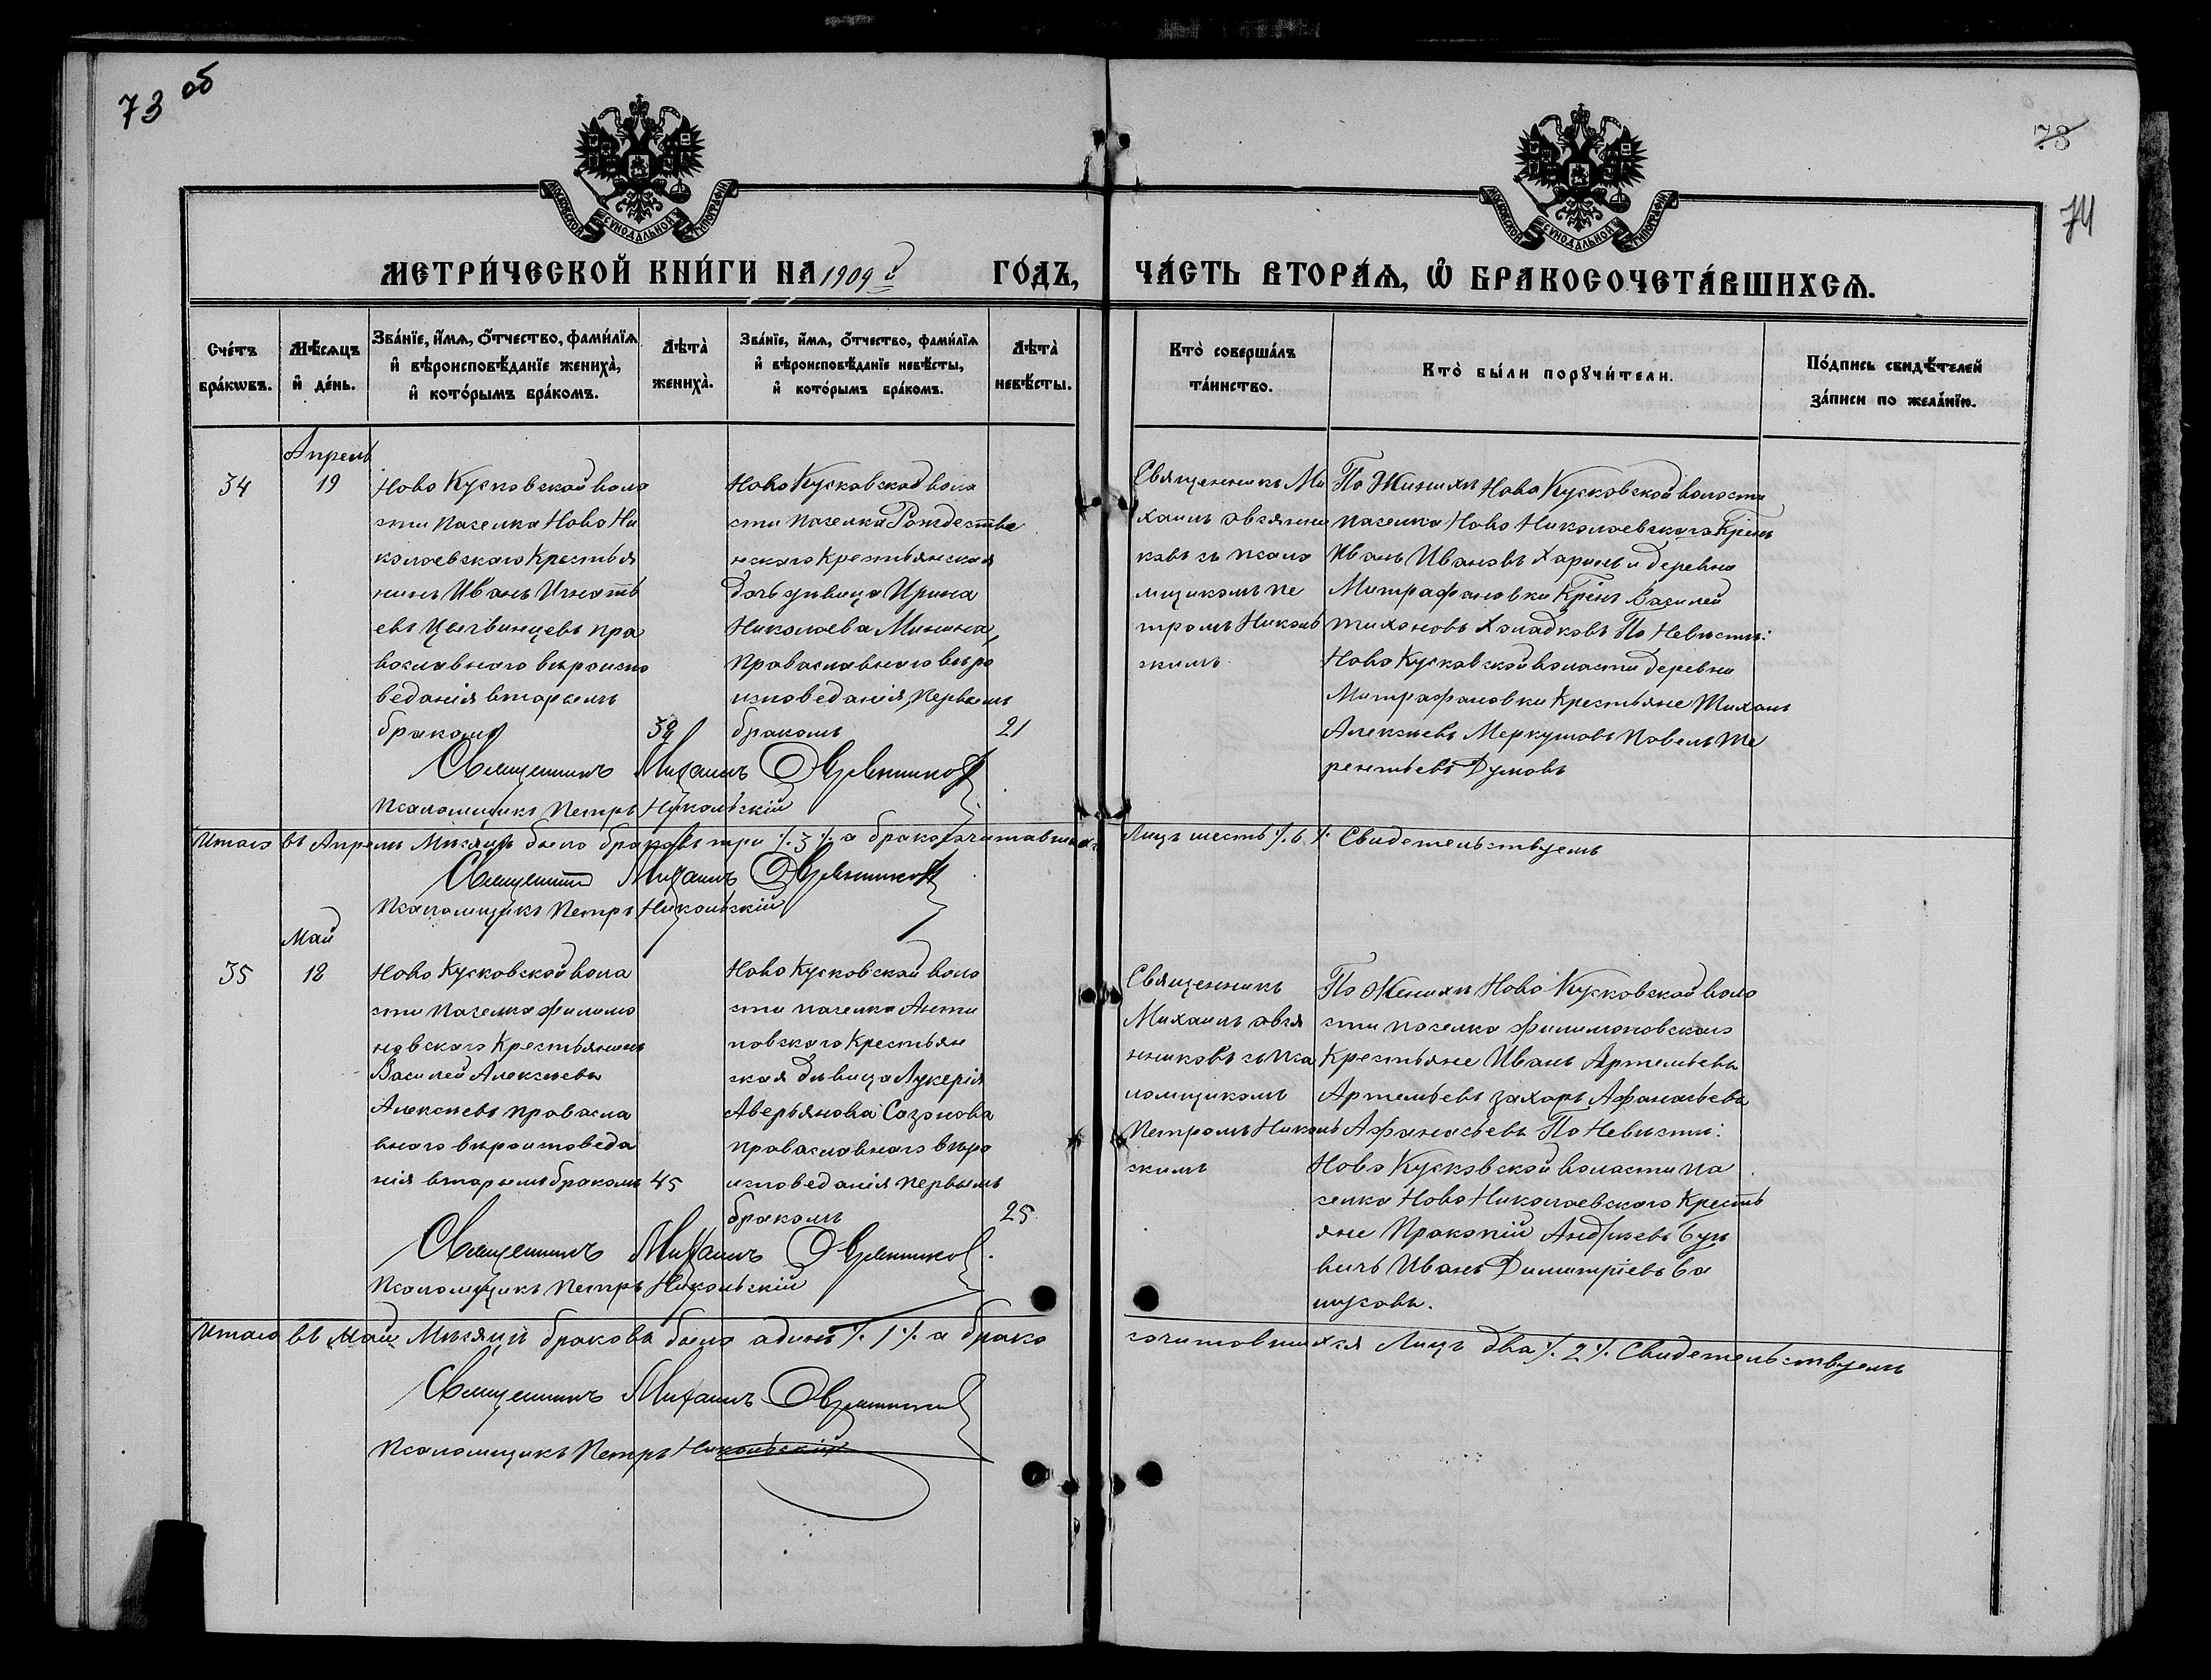 73 об
73
74
МОСКОВСКОЙ СѴНОДАЛЬНОЙ ТИПОГРАФІИ
МОСКОВСКОЙ СѴНОДАЛЬНОЙ ТИПОГРАФІИ
МЕТРИ́ЧЕСКОЙ КНИ́ГИ НА 1909 й ГО́ДЪ,
ЧА́СТЬ ВТОРА́Ѧ, Ѡ҆ БРАКОСОЧЕТА́ВШИХСѦ.
Сче́тъ бра́кѡвъ.
Мѣ́сѧцъ и҆ де́нь.
Зва́нїе, и҆́мѧ, ѻ҆́тчество, фами́лїѧ
и҆ вѣроисповѣ́данїе жениха̀,
и҆ кото́рымъ бра́комъ.
Лѣта̀ жениха̀.
Зва́нїе, и҆́мѧ, ѻ҆́тчество, фами́лїѧ
и҆ вѣроисповѣ́данїе невѣ́сты,
и҆ кото́рымъ бра́комъ.
Лѣта̀ невѣ́сты.
Кто̀ соверша́лъ
та́инство.
Кто̀ бы́ли порꙋчи́тели.
По́дпись свидѣ́телей
за́писи по жела́нїю.
34
Апрель
19
Ново Кусковской воло
сти поселка Ново Ни
колаевского Крестья
нинъ Иванъ Игнать
евъ Цыгвинцевъ пра
вославного вероиспо
веданія вторымъ
бракомъ
Ново Кусковской воло
сти поселка Рождестве
нского Крестьянская
дочь девица Ирина
Николаева Минина,
православного веро
исповеданія, первымъ
бракомъ
21
Священникъ Ми
хаилъ Овсянни
ковъ съ псало
мщикомъ Пе
тромъ Николь
скимъ
По Женихе Ново Кусковской волости
поселка Ново Николаевского Крсне
Иванъ Ивановъ Харинъ и деревни
Митрофановки Крснъ Василей
Тихоновъ Холадковъ По Невесте:
Ново Кусковской воласти деревни
Митрафановки Крестьяне Тихонъ
Алексеевъ Меркушовъ Повелъ Те
рентьевъ Думовъ
Священникъ Михаилъ Овсянников
Псаломщикъ Петръ Никольскій
Итого въ Апреле Месяце было браковъ три ./. 3 ./. а бракосочитавшихс
Лицъ шесть ./. 6 ./. Свидетельствуемъ
Священник Михаилъ Овсянников
Псаломщикъ Петръ Никольскій
Май
35
12
Ново Кусковской вола
сти поселка Филимо
новского Крестьянинъ
Василей Алексеевъ
Алексеевъ правосла
вного вероисповеда
нія вторымъ бракомъ
45
Ново Кусковской воло
сти поселка Анти
повского Крестьян
ская девица Лукерія
Аверьянова Созонова
православного веро
исповеданія первымъ
бракомъ
25
Священникъ
Михаилъ Овся
нниковъ съ Пса
ломщикомъ
Петромъ Николь
скимъ
По Женихе Ново Кусковской воло
сти поселка Филимоновского
Крестьяне Иванъ Артемьевъ
Артемьевъ Захоръ Афанасьевъ
Афанасьевъ По Невесте:
Ново Кусковской воласти по
селка Ново Николаевского Кресть
яне Пракопій Андреевъ
Иванъ Димитріевъ
Священникъ Михаилъ Овсянников.
Псаломщикъ Петръ Никольскій
Итого въ Мае Месяце браковъ было адинъ ./. 1 ./. а брако
сочитовшихся Лицъ два ./. 2 ./. Свидетельствуемъ
Священникъ Михаилъ Овсянников
Псаломщикъ Петръ Никольскій